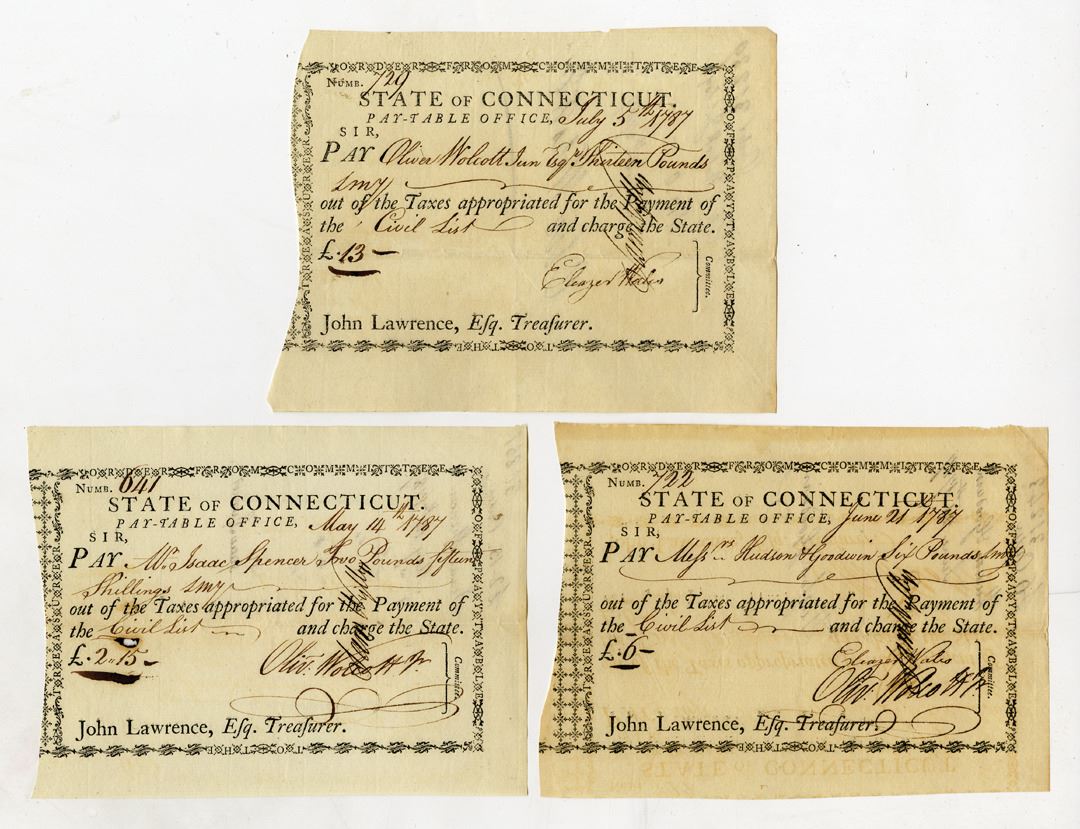 ORDER FROM COMMITTEE OF PAY-TABLE
TO THE TREASURER
NUMB. 729
STATE OF CONNECTICUT.
PAY-TABLE OFFICE, July 5th 1787
SIR,
PAY Oliver Wolcott Jun Esqr Thirteen Pounds
Lmy
out of the Taxes appropriated for the Payment of
the Civil List and charge the State.
£.13-
Eleazer Wales
Committee.
John Lawrence, Eſq. Treaſurer.
ORDER FROM COMMITTEE OF PAY-TABLE
TO THE TREASURER
NUMB. 641
STATE OF CONNECTICUT.
PAY-TABLE OFFICE, May 14th 1787
SIR,
PAY Mr. Isaac Spencer Two Pounds fifteen
Shillings Lmy
out of the Taxes appropriated for the Payment of
the Civil List and charge the State.
£.2.15-
Oliv. Wolcott Jr.
Committee.
John Lawrence, Eſq. Treaſurer.
ORDER FROM COMMITTEE OF PAY-TABLE
TO THE TREASURER
NUMB. 722
STATE OF CONNECTICUT.
PAY-TABLE OFFICE, June 21 1787
SIR,
PAY Messrs. Hudson & Goodwin Six Pounds Lmy
out of the Taxes appropriated for the Payment of
the Civil List and charge the State.
£.6-
Eleazer Wales
Oliv. Wolcott Jr
Committee.
John Lawrence, Eſq. Treaſurer.
STATE OF CONNECTICUT